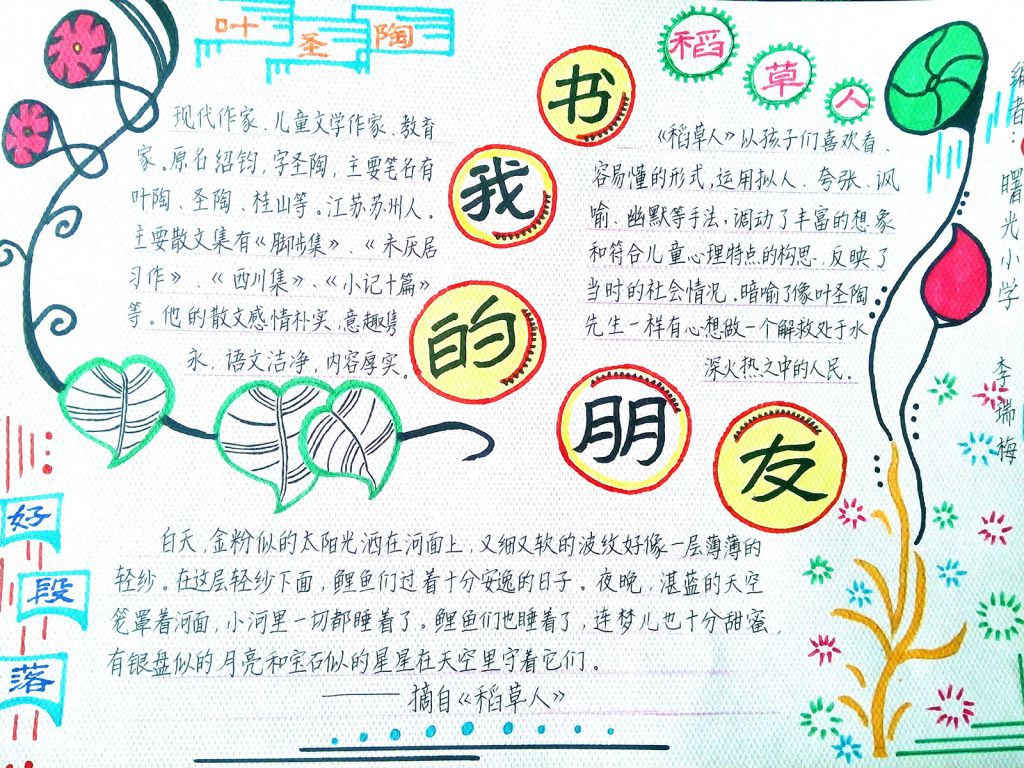 叶圣陶
现代作家、儿童文学作家、教育
家。原名绍钧,字圣陶,主要笔名有
叶陶、圣陶、桂山等。江苏苏州人。
主要散文集有《脚步集》、《未厌居
习作》、《西川集》、《小记十篇》
等。他的散文感情朴实,意趣隽
永,语文洁净,内容厚实。
书
我
的
朋
友
稻草人
《稻草人》从孩子们喜欢看、
容易懂的形式,运用拟人、夸张、讽
喻、幽默等手法,调动了丰富的想象
和符合儿童心理特点的构思,反映了
当时的社会情况。暗喻了像叶圣陶
先生一样有心想做一个解救处于水
深火热之中的人民。
编者:曙光小学 李瑞梅
好段落
白天,金粉似的太阳光洒在河面上,又细又软的波纹好像一层薄薄的
轻纱。在这层轻纱下面,鲤鱼们过着十分安逸的日子。夜晚,湛蓝的天空
笼罩着河面,小河里一切都睡着了。鲤鱼们也睡着了,连梦儿也十分甜蜜,
有银盘似的月亮和宝石似的星星在天空里守着它们。
——摘自《稻草人》